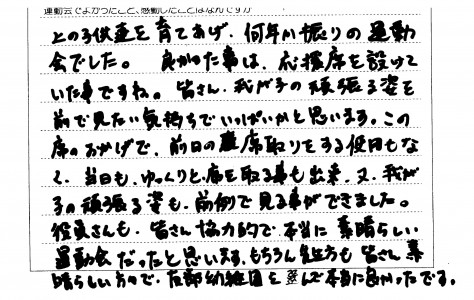 運動会でよかったこと、感動したことはなんですか
上の子供達を育てあげ、何年か振りの運動
会でした。 良かった事は、応援席を設けて
いた事ですね。皆さん、我が子の頑張る姿を
前で見たい気持ちでいっぱいかと思います。この
席のおかげで、前日の座席取りをする使用もな
く、当日も、ゆっくりと席を取る事も出来、又、我が
子の頑張る姿も、前例で見る事ができました。
役員さんも、皆さん協力的で、本当に素晴らしい
運動会だったと思います。もちろん先生方も皆さん素
晴らしい方々で、友部幼稚園を選んで本当に良かったです。